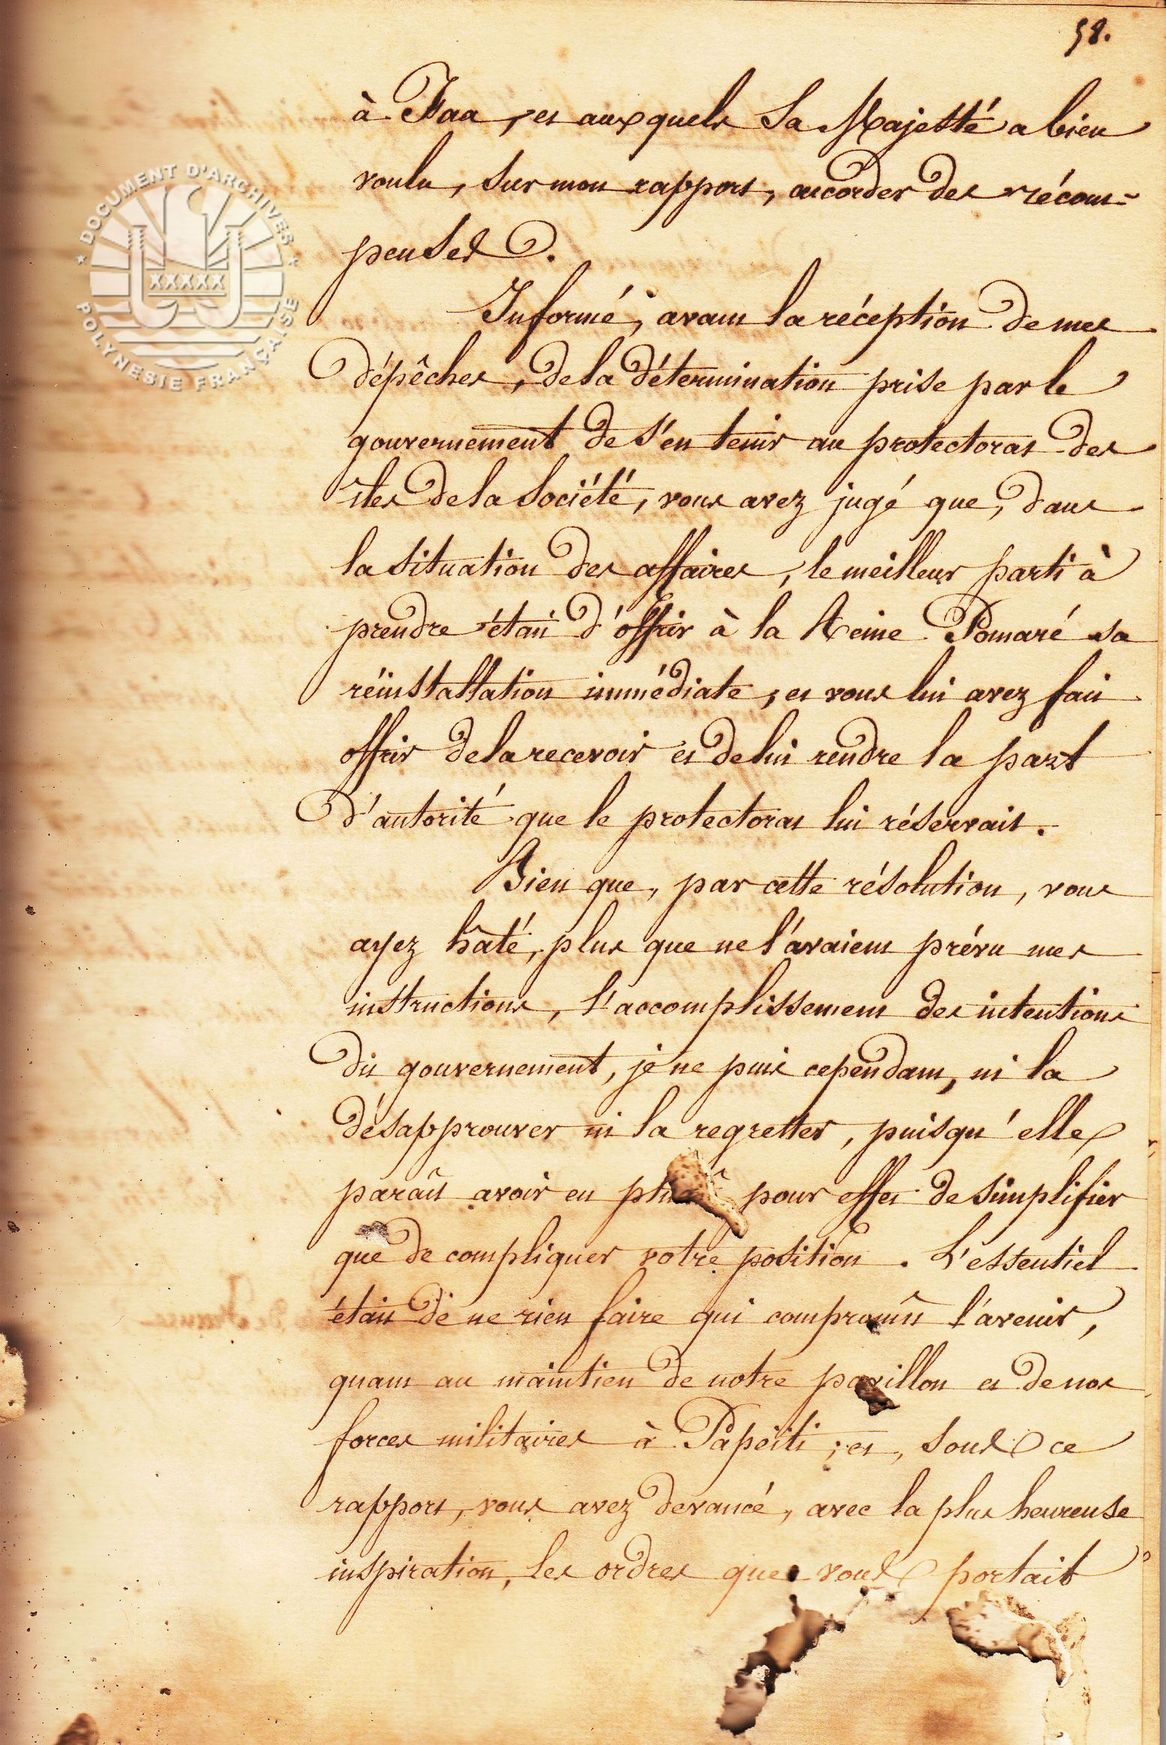 58.
à Faa, et auxquels Sa Majesté a bien
voulu, sur mon rapport, accorder des récom-
penses.
Informé, avant la réception de mes
dépêches, de la détermination prise par le
gouvernement de s'en tenir au protectorat des
îles de la Société, vous avez jugé que, dans
la situation des affaires, le meilleur parti à
prendre était d'offrir à la Reine Pomaré sa
réinstallation immédiate, et vous lui avez fait
offrir de la recevoir et de lui rendre la part
d'autorité que le protectorat lui réservait.
Bien que, par cette résolution, vous
ayez hâté, plus que ne l'avaient prévu mes
instructions, l'accomplissement des intentions
du gouvernement, je ne puis cependant, ni la
désapprouver ni la regretter, puisqu'elle
paraît avoir eu plutôt pour effet de simplifier
que de compliquer votre position. L'essentiel
était de ne rien faire qui compromît l'avenir,
quant au maintien de notre pavillon et de nos
forces militaires à Papeïti; et, sous ce
rapport, vous avez devancé, avec la plus heureuse
inspiration, les ordres que vous portait
DOCUMENT D'ARCHIVES
XXXXX
POLYNESIE FRANÇAISE